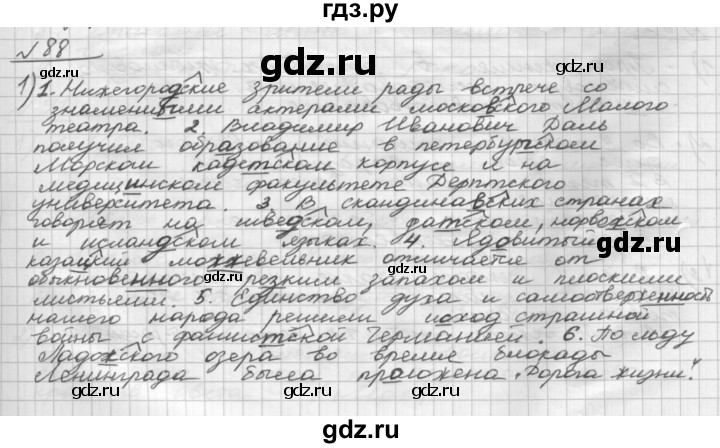 гдз.ру
№88
1) 1. Нижегородские зрители рады встрече со
знаменитыми актерами московского Малого
театра. 2. Владимир Иванович Даль
получил образование в петербургском
Морском кадетском корпусе и на
медицинском факультете Дерптского
университета. 3. В скандинавских странах
говорят на шведском, датском, норвежском
и исландском языках. 4. Ядовитый
казацкий можжевельник отличается от
обыкновенного резким запахом и плоскими
листьями. 5. Единство духа и самоотверженность
нашего народа решили исход страшной
войны с фашистской Германией. 6. По льду
Ладожского озера во время блокады
Ленинграда была проложена „Дорога жизни".
гдз.ру